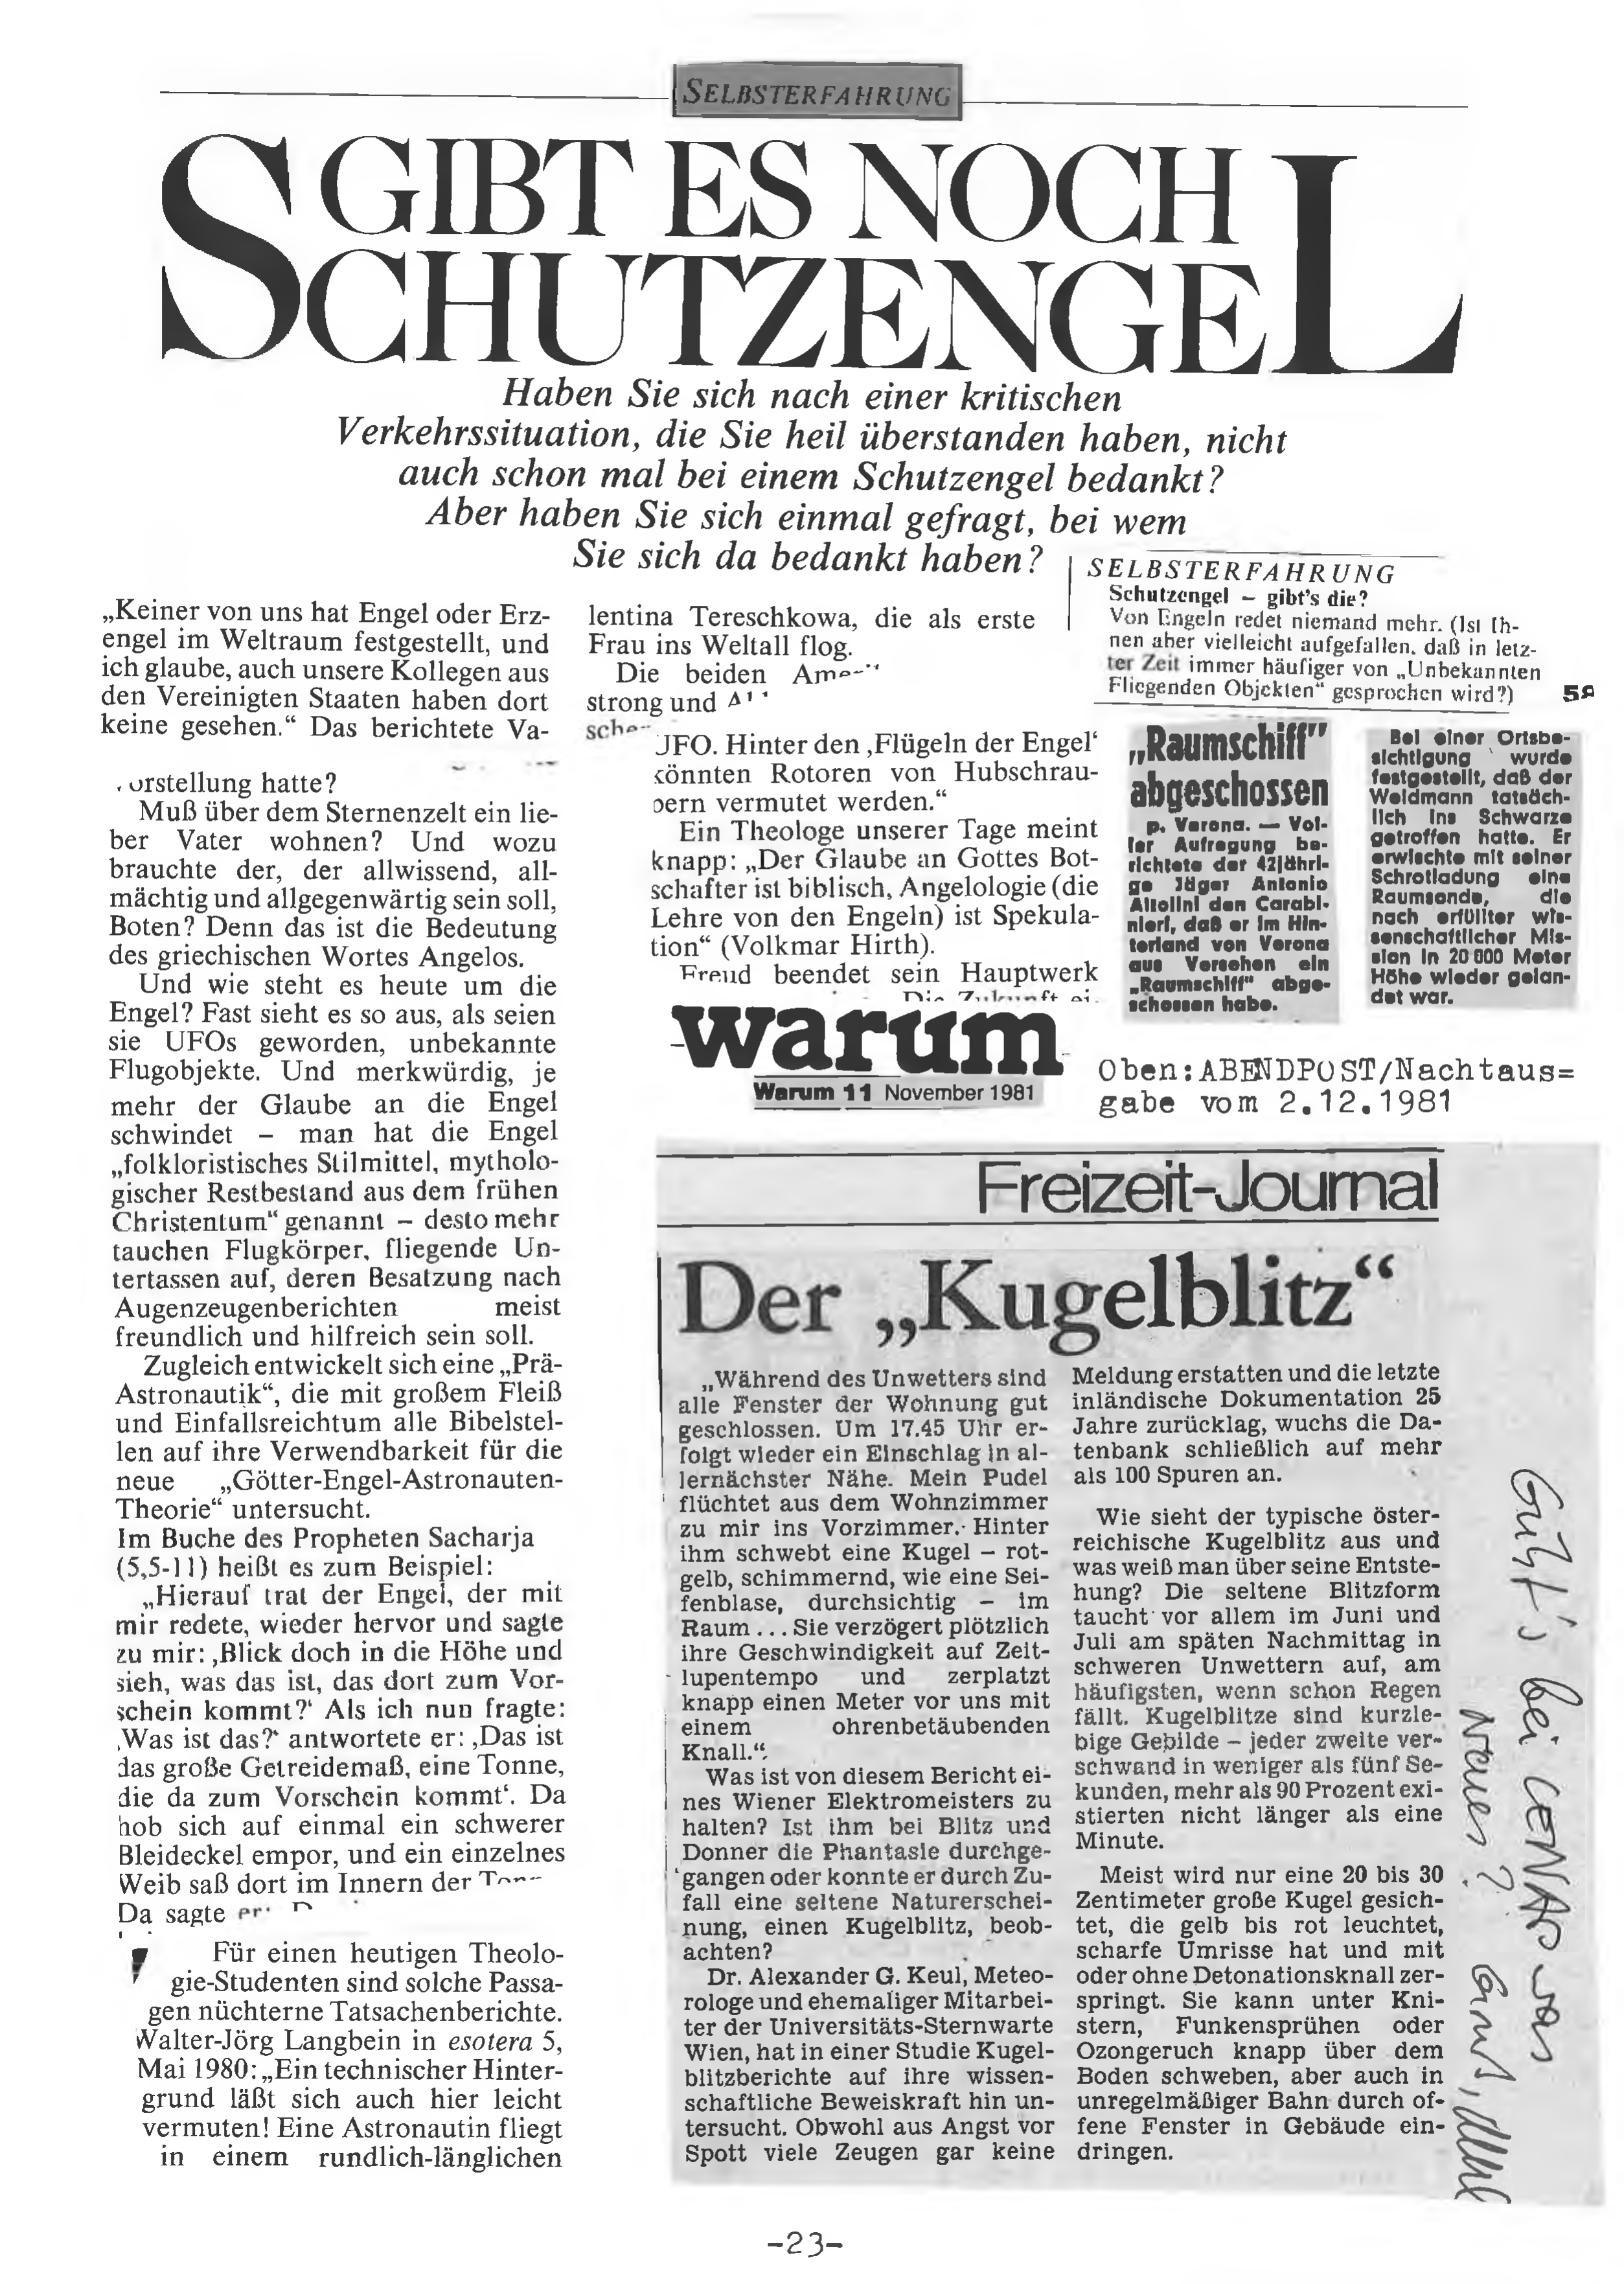 SELBSTERFAHRUNG
GIBT ES NOCH
SCHUTZENGEL
Haben Sie sich nach einer kritischen
Verkehrssituation, die Sie heil überstanden haben, nicht
auch schon mal bei einem Schutzengel bedankt?
Aber haben Sie sich einmal gefragt, bei wem
Sie sich da bedankt haben?
„Keiner von uns hat Engel oder Erz-
engel im Weltraum festgestellt, und
ich glaube, auch unsere Kollegen aus
den Vereinigten Staaten haben dort
keine gesehen.“ Das berichtete Va-
orstellung hatte?
Muß über dem Sternenzelt ein lie-
ber Vater wohnen? Und wozu
brauchte der, der allwissend, all-
mächtig und allgegenwärtig sein soll,
Boten? Denn das ist die Bedeutung
des griechischen Wortes Angelos.
Und wie steht es heute um die
Engel? Fast sieht es so aus, als seien
sie UFOs geworden, unbekannte
Flugobjekte. Und merkwürdig, je
mehr der Glaube an die Engel
schwindet – man hat die Engel
„folkloristisches Stilmittel, mytholo-
gischer Restbestand aus dem frühen
Christentum“ genannt – desto mehr
tauchen Flugkörper, fliegende Un-
tertassen auf, deren Besatzung nach
Augenzeugenberichten meist
freundlich und hilfreich sein soll.
Zugleich entwickelt sich eine „Prä-
Astronautik“, die mit großem Fleiß
und Einfallsreichtum alle Bibelstel-
len auf ihre Verwendbarkeit für die
neue „Götter-Engel-Astronauten-
Theorie“ untersucht.
Im Buche des Propheten Sacharja
(5,5-11) heißt es zum Beispiel:
„Hierauf trat der Engel, der mit
mir redete, wieder hervor und sagte
zu mir: ‚Blick doch in die Höhe und
sieh, was das ist, das dort zum Vor-
schein kommt?‘ Als ich nun fragte:
‚Was ist das?‘ antwortete er: ‚Das ist
das große Getreidemaß, eine Tonne,
die da zum Vorschein kommt‘. Da
hob sich auf einmal ein schwerer
Bleideckel empor, und ein einzelnes
Weib saß dort im Innern der
Da sagte
Für einen heutigen Theolo-
gie-Studenten sind solche Passa-
gen nüchterne Tatsachenberichte.
Walter-Jörg Langbein in esotera 5,
Mai 1980: „Ein technischer Hinter-
grund läßt sich auch hier leicht
vermuten! Eine Astronautin fliegt
in einem rundlich-länglichen
lentina Tereschkowa, die als erste
Frau ins Weltall flog.
Die beiden
strong und
UFO. Hinter den ‚Flügeln der Engel‘
könnten Rotoren von Hubschrau-
bern vermutet werden.“
Ein Theologe unserer Tage meint
knapp: „Der Glaube an Gottes Bot-
schafter ist biblisch, Angelologie (die
Lehre von den Engeln) ist Spekula-
tion“ (Volkmar Hirth).
Freud beendet sein Hauptwerk
Die Zukunft ei
warum
Warum 11 November 1981
SELBSTERFAHRUNG
Schutzengel – gibt's die?
Von Engeln redet niemand mehr. (Ist Ih-
nen aber vielleicht aufgefallen, daß in letz-
ter Zeit immer häufiger von „Unbekannten
Fliegenden Objekten“ gesprochen wird?) 58
„Raumschiff"
abgeschossen
p. Verona. — Vol-
ler Aufregung be-
richtete der 42jähri-
ge Jäger Antonio
Altolini den Carabi-
nieri, daß er im Hin-
terland von Verona
aus Versehen ein
„Raumschiff" abge-
schossen habe.
Bei einer Ortsbe-
sichtigung wurde
festgestellt, daß der
Weidmann tatsäch-
lich ins Schwarze
getroffen hatte. Er
erwischte mit seiner
Schrotladung eine
Raumsonde, die
nach erfüllter wis-
senschaftlicher Mis-
sion in 20 000 Meter
Höhe wieder gelan-
det war.
Oben:ABENDPOST/Nachtaus=
gabe vom 2.12.1981
Freizeit-Journal
Der „Kugelblitz“
„Während des Unwetters sind
alle Fenster der Wohnung gut
geschlossen. Um 17.45 Uhr er-
folgt wieder ein Einschlag in al-
lernächster Nähe. Mein Pudel
flüchtet aus dem Wohnzimmer
zu mir ins Vorzimmer. Hinter
ihm schwebt eine Kugel – rot-
gelb, schimmernd, wie eine Sei-
fenblase, durchsichtig – im
Raum ... Sie verzögert plötzlich
ihre Geschwindigkeit auf Zeit-
lupentempo und zerplatzt
knapp einen Meter vor uns mit
einem ohrenbetäubenden
Knall.“
Was ist von diesem Bericht ei-
nes Wiener Elektromeisters zu
halten? Ist ihm bei Blitz und
Donner die Phantasie durchge-
gangen oder konnte er durch Zu-
fall eine seltene Naturerschei-
nung, einen Kugelblitz, beob-
achten?
Dr. Alexander G. Keul, Meteo-
rologe und ehemaliger Mitarbei-
ter der Universitäts-Sternwarte
Wien, hat in einer Studie Kugel-
blitzberichte auf ihre wissen-
schaftliche Beweiskraft hin un-
tersucht. Obwohl aus Angst vor
Spott viele Zeugen gar keine
Meldung erstatten und die letzte
inländische Dokumentation 25
Jahre zurücklag, wuchs die Da-
tenbank schließlich auf mehr
als 100 Spuren an.
Wie sieht der typische öster-
reichische Kugelblitz aus und
was weiß man über seine Entste-
hung? Die seltene Blitzform
taucht vor allem im Juni und
Juli am späten Nachmittag in
schweren Unwettern auf, am
häufigsten, wenn schon Regen
fällt. Kugelblitze sind kurzle-
bige Gebilde – jeder zweite ver-
schwand in weniger als fünf Se-
kunden, mehr als 90 Prozent exi-
stierten nicht länger als eine
Minute.
Meist wird nur eine 20 bis 30
Zentimeter große Kugel gesich-
tet, die gelb bis rot leuchtet,
scharfe Umrisse hat und mit
oder ohne Detonationsknall zer-
springt. Sie kann unter Kni-
stern, Funkensprühen oder
Ozongeruch knapp über dem
Boden schweben, aber auch in
unregelmäßiger Bahn durch of-
fene Fenster in Gebäude ein-
dringen.
bei CENAP was
Neues?
-23-